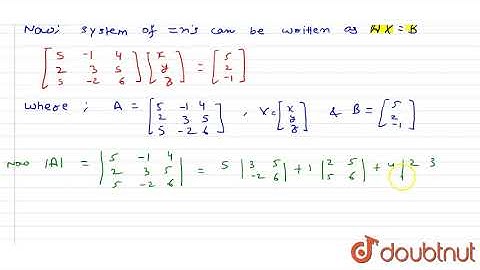 Now; system of =n's can be written as AX = B
[5 -1 4; 2 3 5; 5 -2 6] [x; y; z] = [5; 2; -1]
where ; A = [5 -1 4; 2 3 5; 5 -2 6] , X = [x; y; z] & B = [5; 2; -1]
now |A| = |5 -1 4; 2 3 5; 5 -2 6| = 5 |3 5; -2 6| + 1 |2 5; 5 6| + 4 |2 3
doubtnut